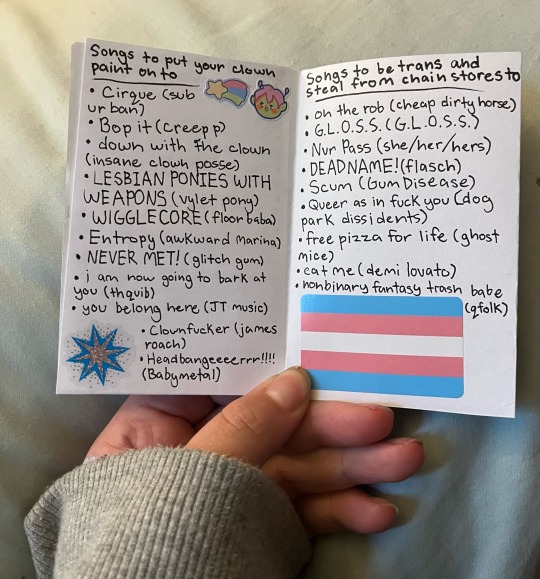 Songs to put your clown
paint on to
• Cirque (sub
urban)
• Bop it (creep p)
• down with the clown
(insane clown posse)
• LESBIAN PONIES WITH
WEAPONS (vylet pony)
• WIGGLECORE (floor baba)
• Entropy (awkward marina)
• NEVER MET! (glitch gum)
• i am now going to bark at
you (thquib)
• you belong here (JT music)
• Clownfucker (james
roach)
• Headbangeeeerrr!!!!
(Babymetal)
Songs to be trans and
steal from chain stores to
• on the rob (cheap dirty horse)
• G.L.O.S.S. (G.L.O.S.S.)
• Nvr Pass (she/her/hers)
• DEADNAME! (flasch)
• Scum (Gum Disease)
• Queer as in fuck you (dog
park dissidents)
• free pizza for life (ghost
mice)
• eat me (demi lovato)
• nonbinary fantasy trash babe
(qfolk)